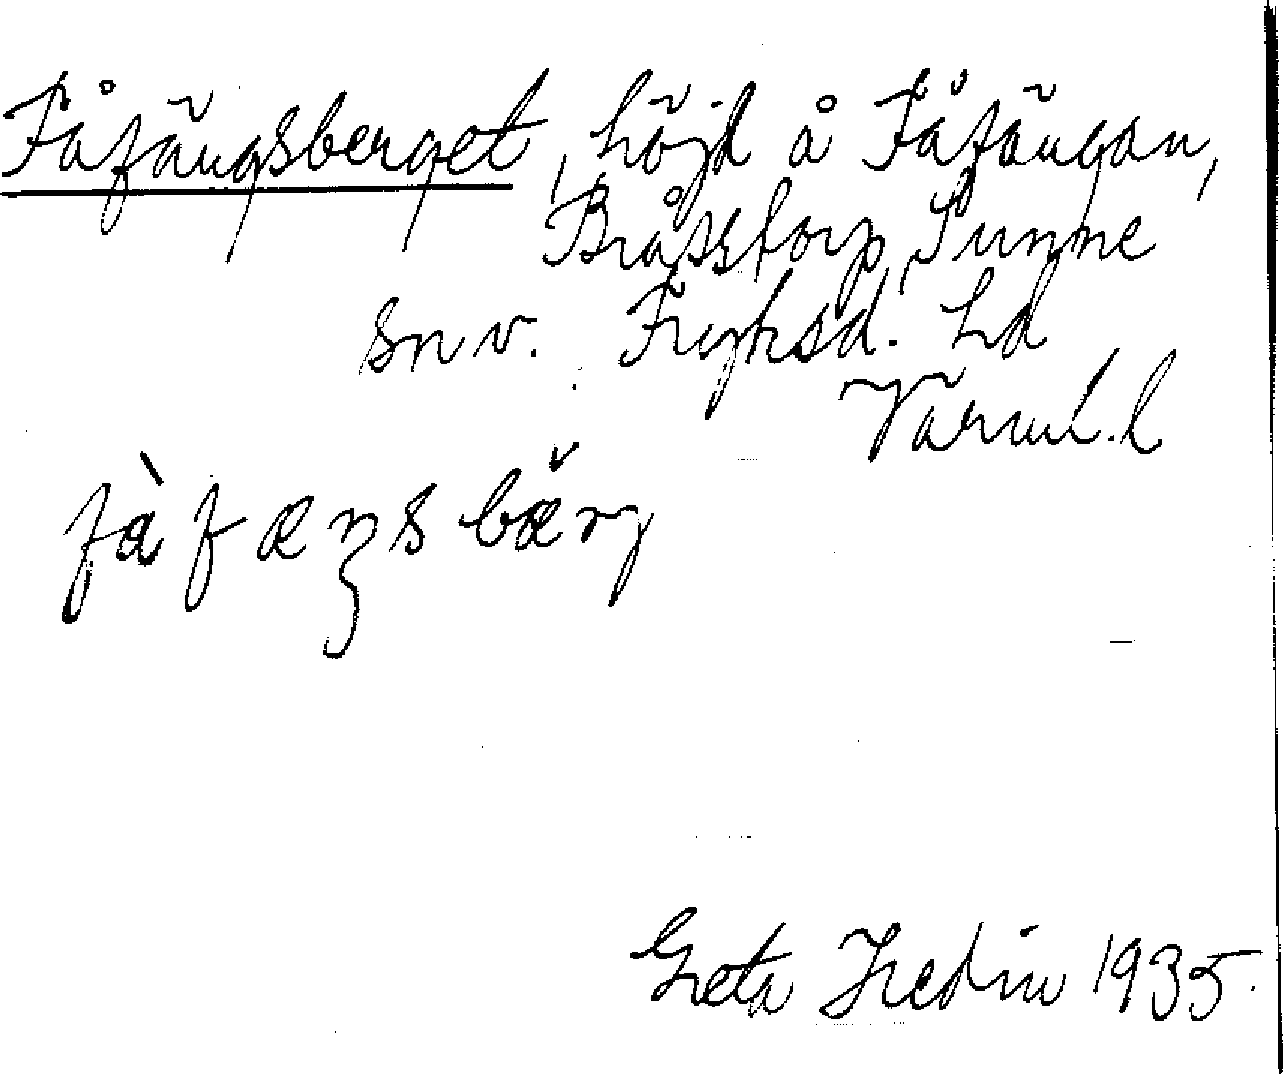 Fåfängsberget, höjd å Fåfängan,
Bråstorp, Sunne
sn v. Fryksd. hd
Värml. l
fàfæŋsbærg
Greta Hedin 1935.